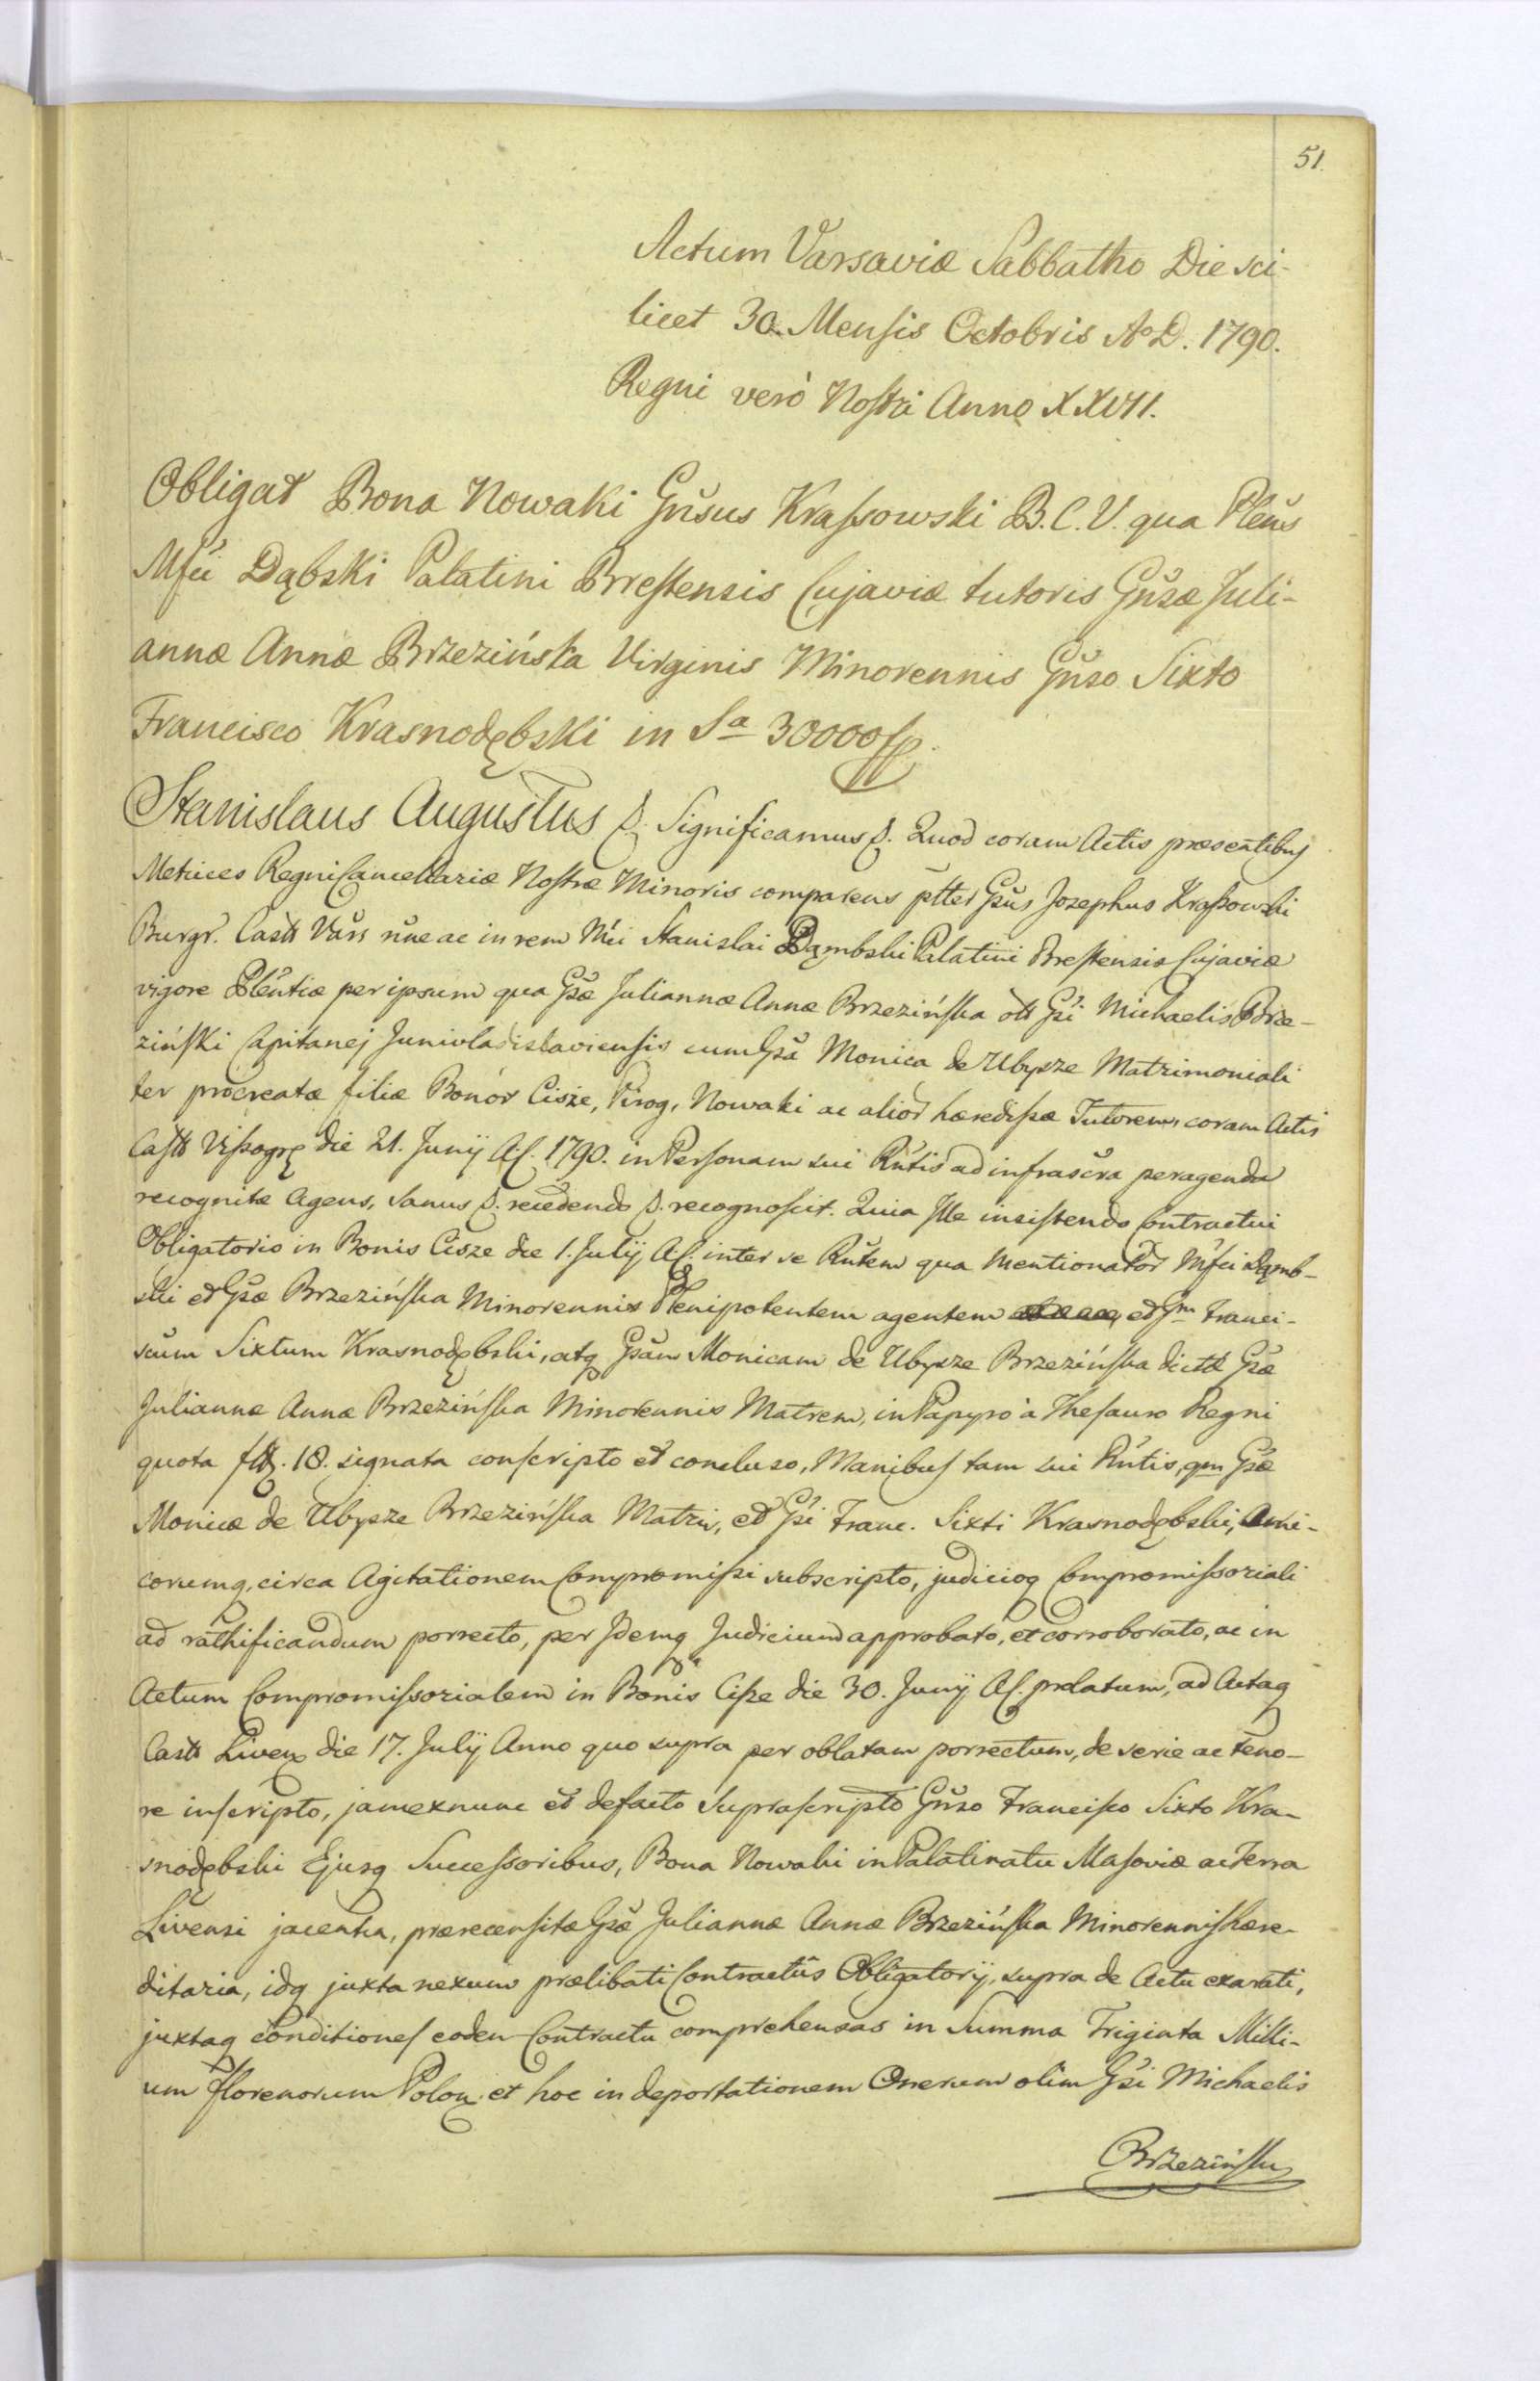 51.
Actum Varsaviæ Sabbatho Die sci-
licet 30. Mensis Octobris Aº D. 1790.
Regni verò Nostri Anno XXVII.
Obligat Bona Nowaki Gnsus Krassowski B. C. V. qua Plenus
Mfci Dąbski Palatini Brrestensis Cujaviæ tutoris Gnsæ Juli-
annæ Annæ Brzezińska Virginis Minorennis Gnso Sixto
Francisco Krasnodębski in Sa 30000 fp.
Stanislaus Augustus &. Significamus &. Quod coram Actis præsentibus
Metrices Regni Cancellariæ Nostræ Minoris comparens ptter Gsus Josephus Kraßowski
Burgr. Castr Vars nne ac in rem Mci Stanislai Dąmbski Palatini Brestensis Cujaviæ
vigore Plentiæ per ipsum qua Gsæ Juliannæ Annæ Brzezińska ott Gsi Michaelis Brze-
ziński Capitanej Junivladislaviensis cum Gsa Monica de Ubysze Matrimoniali
ter procreatæ filiæ Bonor Cisze, Pirog, Nowaki ac alior hæredissæ Tutorem, coram Actis
Castr Vissogrę die 21. Junij A. C. 1790. in Personam sui Rntis ad infrascra peragenda
recognitæ Agens, Sanus &. recedendo &. recognoscit. Quia Ille insistendo Contractui
Obligatorio in Bonis Cisze die 1. Julij A. C. inter se Rntem qua Mentionator Mfci Dąmb-
ski et Gsæ Brzezińska Minorennis Plenipotentem agentem et Gm Franci-
scum Sixtum Krasnodębski, atq Gsam Monicam de Ubysze Brzezińska dictæ Gsæ
Juliannæ Annæ Brzezińska Minorennis Matrem, in Papyro à Thesauro Regni
quota 18. signata conscripto et concluso, Manibus tam sui Rntis, qm Gsæ
Monicæ de Ubysze Brzezińska Matris, et Gsi Franc. Sixti Krasnodębski, Ami-
corumq, circa Agitationem Compromissi subscripto, judicioq Compromissoriali
ad rathificandum porrecto, per Idemq Judicium approbato, et corroborato, ac in
Actum Compromissorialem in Bonis Cisze die 30. Junij A. C. prolatum, ad Actaq
Castr Livenx die 17. Julij Anno quo supra per oblatam porrectum, de serie ac teno-
re inscripto, jam exnunc et defacto Suprascripto Gnso Francisco Sixto Kra-
snodębski Ejusq Successoribus, Bona Nowaki in Palatinatu Masoviæ ac Terra
Livensi jacentia, præcensitæ Gsæ Juliannæ Annæ Brzezińska Minorennis Hære-
ditaria, idq juxta nexum prælibati Contractûs Obligatorij, supra de Actu exarati,
juxtaq conditiones eoden Contractu comprehensas in Summa Triginta Milli-
um florenorum Polon et hoc in deportationem Onerum olim Gsi Michaelis
Brzeziński